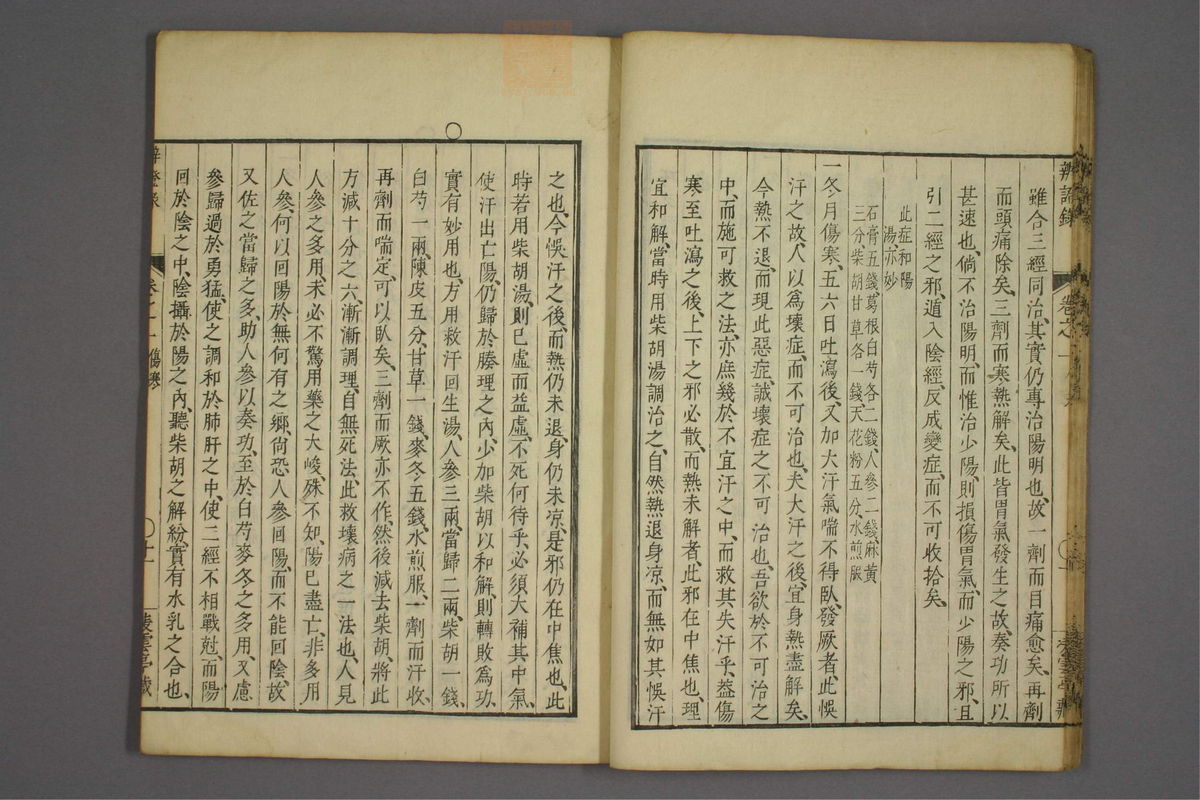 雖合三經同治、其實仍專治陽明也、故一劑而目痛愈矣、再劑
而頭痛除矣、三劑而寒熱解矣、此皆胃氣發生之故、奏功所以
甚速也、倘不治陽明、而惟治少陽、則損傷胃氣、而少陽之邪、且
引二經之邪、遁入陰經、反成變症、而不可收拾矣、
此症和陽
湯亦妙
石膏五錢葛根白芍各二錢、人參二錢麻黃
三分、柴胡甘草各一錢、天花粉五分、水煎服
一冬月傷寒、五六日吐瀉後、又加大汗氣喘不得臥、發厥者、此悞
汗之故、人以爲壞症、而不可治也、夫大汗之後、宜身熱盡解矣、
今熱不退、而現此惡症、誠壞症之不可治也、吾欲於不可治之
中、而施可救之法、亦庶幾於不宜汗之中、而救其失汗乎、葢傷
寒至吐瀉之後、上下之邪必散、而熱未解者、此邪在中焦也、理
宜和解、當時用柴胡湯調治之、自然熱退身凉、而無如其悞汗
之也、今悞汗之後、而熱仍未退、身仍未凉、是邪仍在中焦也、此
時若用柴胡湯、則已虛而益虛、不死何待乎、必須大補其中氣、
使汗出亡陽、仍歸於腠理之內、少加柴胡以和解、則轉敗爲功、
實有妙用也、方用救汗回生湯、人參三兩、當歸二兩、柴胡一錢、
白芍一兩、陳皮五分、甘草一錢、麥冬五錢、水煎服、一劑而汗收、
再劑而喘定、可以臥矣、三劑而厥亦不作、然後減去柴胡、將此
方減十分之六、漸漸調理、自無死法、此救壞病之一法也、人見
人參之多用、未必不驚用藥之大峻、殊不知、陽已盡亡、非多用
人參、何以回陽於無何有之鄉、尚恐人參回陽、而不能回陰、故
又佐之當歸之多、助人參以奏功、至於白芍麥冬之多用、又慮
參歸過於勇猛、使之調和於肺肝之中、使三經不相戰尅、而陽
回於陰之中、陰攝於陽之內、聽柴胡之解紛、實有水乳之合也、
卷之一 傷寒
十一
凌雲亭藏